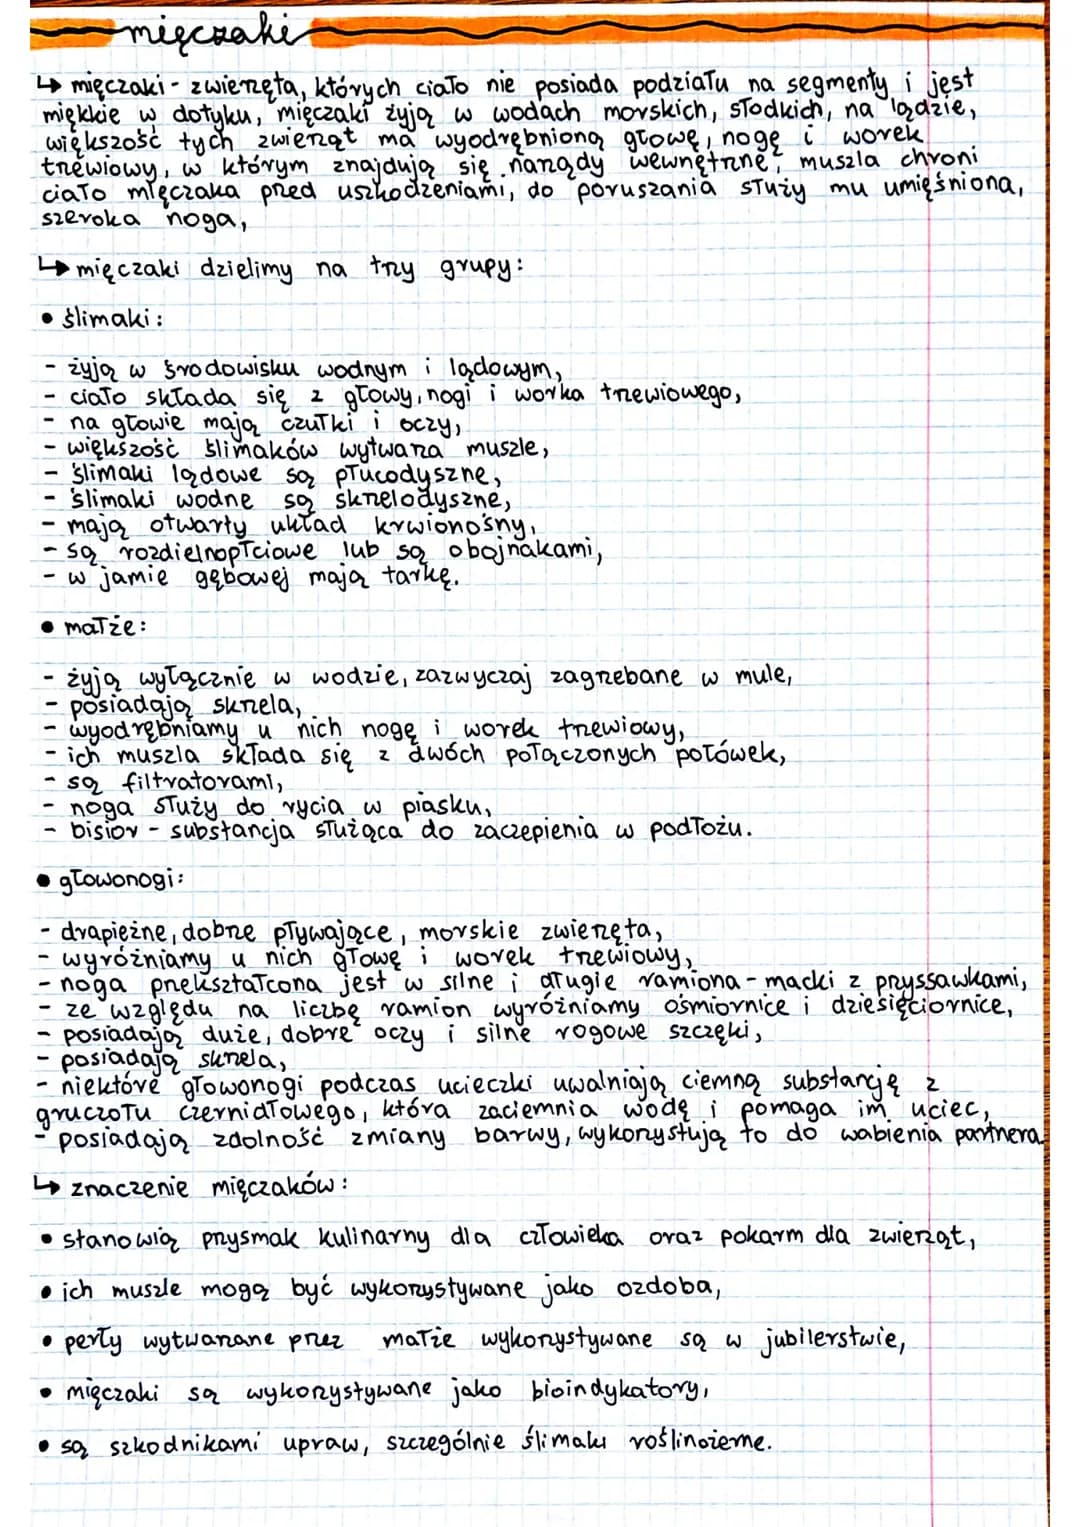 mięczaki
↳ mięczaki - zwierzęta, których ciało nie posiada podziału na segmenty i jest
miękkie w dotyku, mięczaki żyją w wodach morskich, słodkich, na lądzie,
większość tych zwierząt ma wyodrębnioną głowę, nogę i worek
trzewiowy, w którym znajdują się narządy wewnętrzne, muszla chroni
ciało mięczaka przed uszkodzeniami, do poruszania służy mu umięśniona,
szeroka noga,
↳ mięczaki dzielimy na trzy grupy:
• ślimaki:
- żyją w środowisku wodnym i lądowym,
- ciało składa się z głowy, nogi i worka trzewiowego,
- na głowie mają czułki i oczy,
- większość ślimaków wytwarza muszle,
- ślimaki lądowe są płucodyszne,
- ślimaki wodne są skrzelodyszne,
- mają otwarty układ krwionośny,
- są rozdielnopłciowe lub są obojnakami,
- w jamie gębowej mają tarkę.
• małże:
- żyją wyłącznie w wodzie, zazwyczaj zagrzebane w mule,
- posiadają skrzela,
- wyodrębniamy u nich nogę i worek trzewiowy,
- ich muszla składa się z dwóch połączonych połówek,
- są filtratorami,
- noga służy do rycia w piasku,
- bisior - substancja służąca do zaczepienia w podłożu.
• głowonogi:
- drapieżne, dobrze pływające, morskie zwierzęta,
- wyróżniamy u nich głowę i worek trzewiowy,
- noga przekształcona jest w silne i długie ramiona - macki z przyssawkami,
- ze względu na liczbę ramion wyróżniamy ośmiornice i dziesięciornice,
- posiadają duże, dobre oczy i silne rogowe szczęki,
- posiadają skrzela,
- niektóre głowonogi podczas ucieczki uwalniają ciemną substancję z
gruczołu czernidłowego, która zaciemnia wodę i pomaga im uciec,
- posiadają zdolność zmiany barwy, wykorzystują to do wabienia partnera
↳ znaczenie mięczaków:
• stanowią przysmak kulinarny dla człowieka oraz pokarm dla zwierząt,
• ich muszle mogą być wykorzystywane jako ozdoba,
• perły wytwarzane przez małże wykorzystywane są w jubilerstwie,
• mięczaki są wykorzystywane jako bioindykatory,
• są szkodnikami upraw, szczególnie ślimaki roślinożerne.